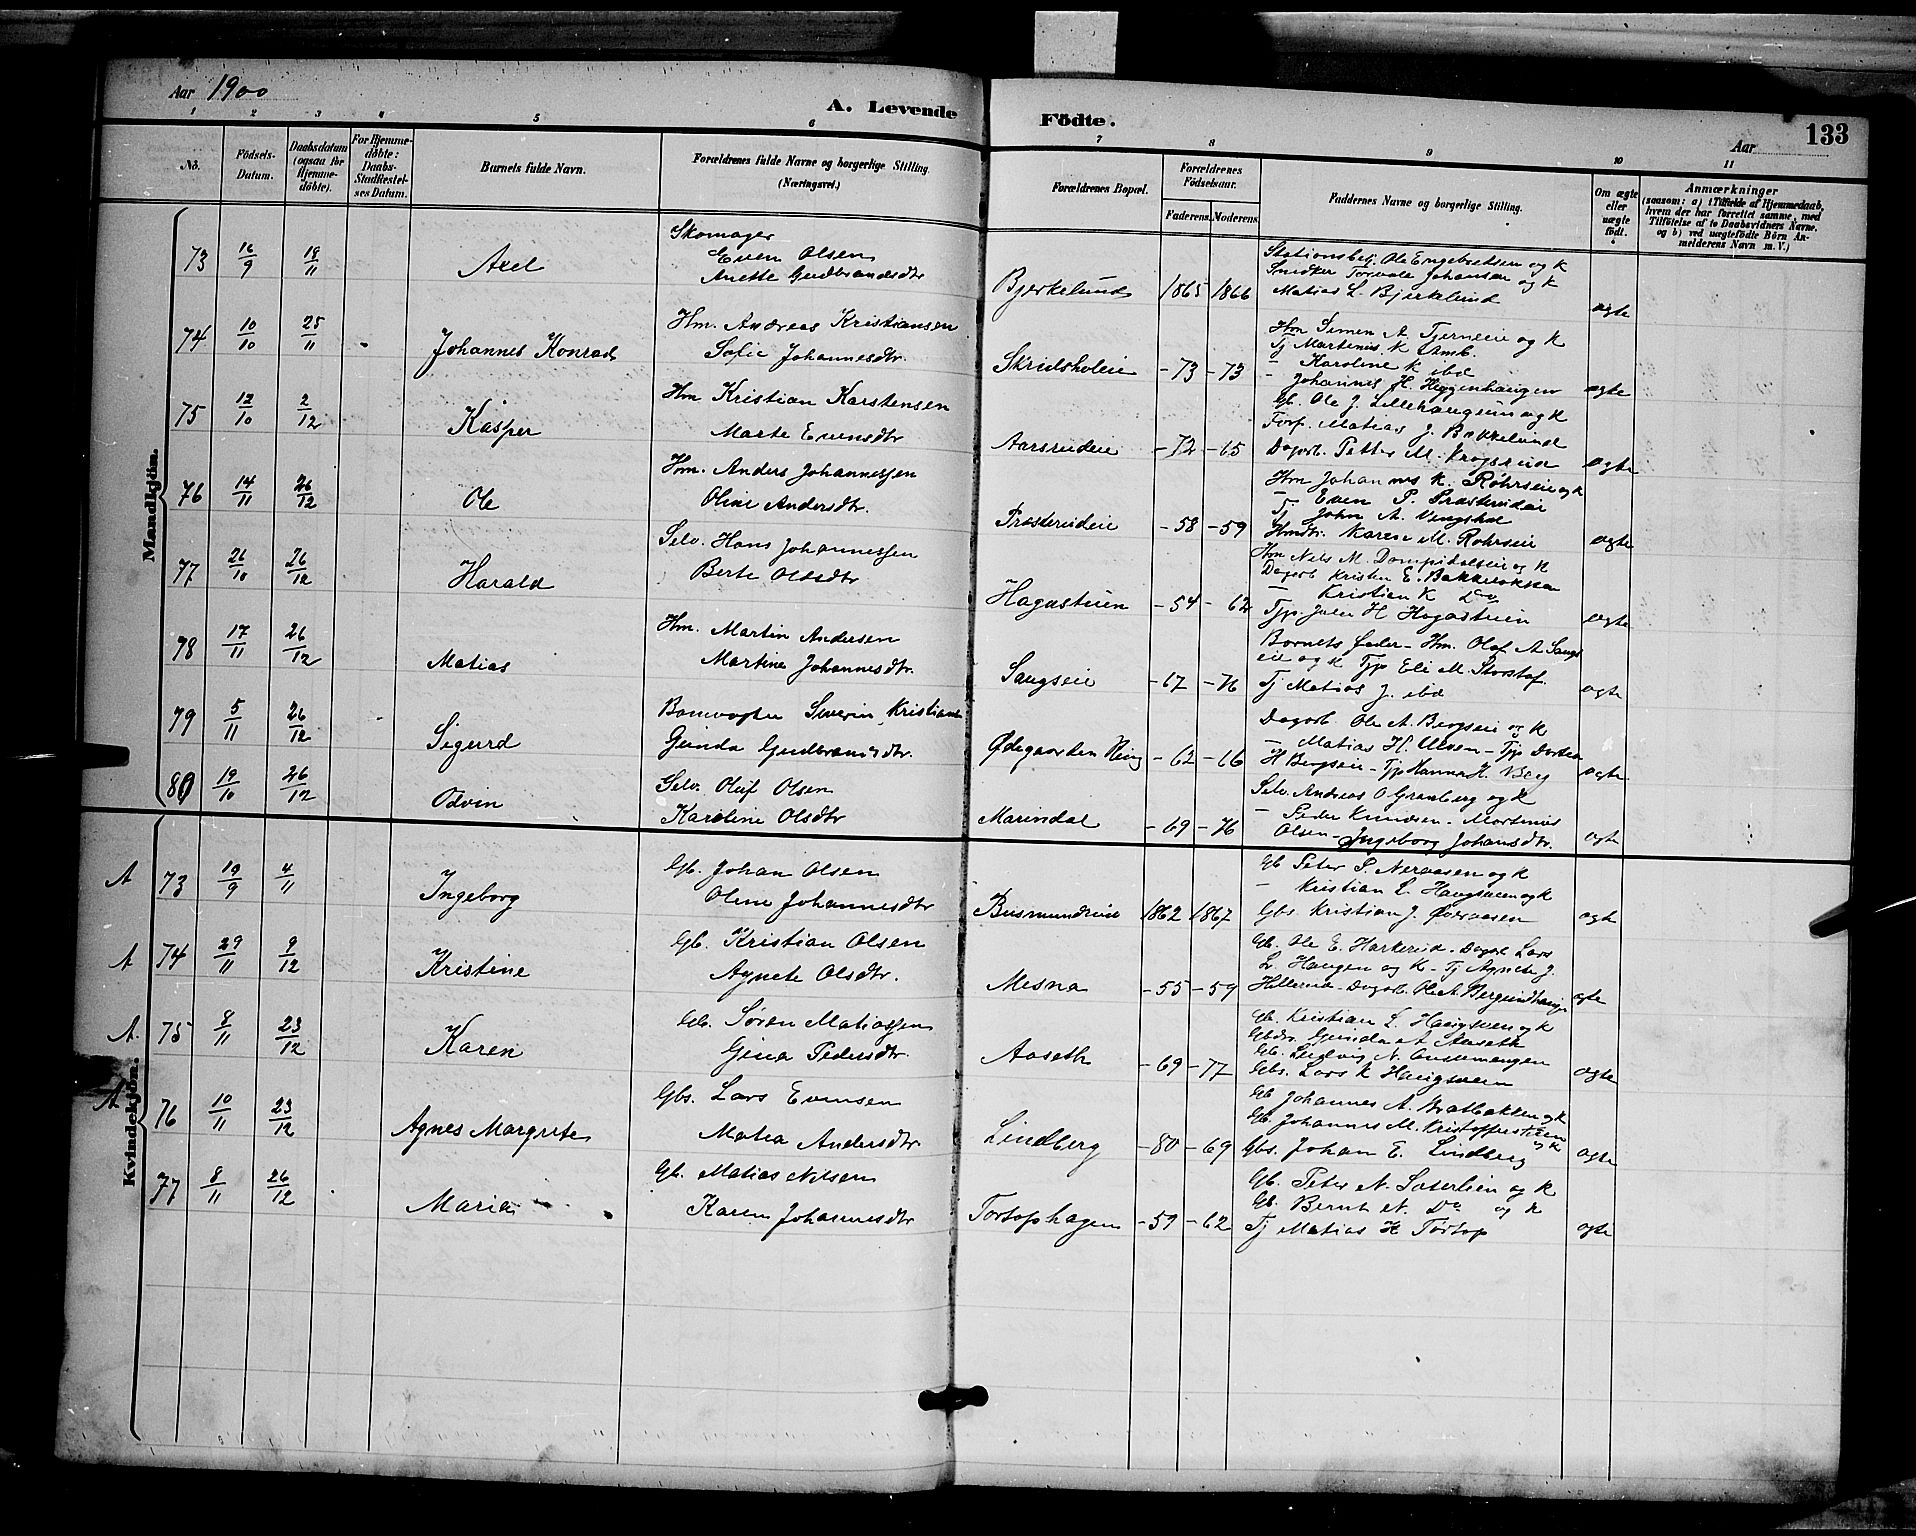 Aar 1900
A. Levende Födte.
Aar 133
1 2 3 4 5 6 7 8 9 10 11
No.
Födsels-Datum.
Daabsdatum (ogsaa for Hjemmedöbte).
For Hjemmedöbte: Daabs-Stadfestelses Datum.
Barnets fulde Navn.
Forældrenes fulde Navne og borgerlige Stilling. (Næringsvei.)
Forældrenes Bopæl.
Forældrenes Födselsaar.
Faderens. Moderens.
Faddernes Navne og borgerlige Stilling.
Om ægte eller uægte födt.
Anmærkninger
(saasom: a) i Tilfælde af Hjemmedaab, hvem der har forrettet samme, med Tilföielse af to Daabsvidners Navne, og b) ved uægtefödte Börn Anmelderens Navn m. V.)
Mandkjön.
73 16/9 18/11 Axel
Skomager
Even Olsen
Anette Gudbrandsdtr
Bjerkelund 1865 1866
Stationsbetj. Ole Engebretsen og K
Snedker Torvald Johansen og K
Matias L. Bjerkelund
ægte
74 10/10 25/11 Johannes Konrad
Hm. Andreas Kristiansen
Sofie Johannesdtr.
Skrudsholeie -73 -73
Hm Simen A. Tjerneie og K
Tj Martenius K Amb.
- Karoline K ibd
- Johannes H. Heggenhaugen
ægte
75 12/10 2/12 Kasper
Hm Kristian Karstensen
Marte Evensdtr
Aarsrudeie -72 -65
Gb. Ole J. Lillehaugum og K
Torp. Matias J. Bakkelund
Dagarb. Petter M. Krogsrud
ægte
76 14/11 26/12 Ole
Hm. Anders Johannessen
Oline Andersdtr.
Præsterudeie -58 -59
Hm Johannes K. Røhrseie og K
- Even P. Præsterudeie
Tj. John A. Vingshol
Hmdtr. Karen M. Rohrseie
ægte
77 26/10 26/12 Harald
Selv. Hans Johannessen
Berte Olesdtr
Hagastuen -54 -62
Hm Nels M. Dompidalseie og K
Dagarb Kristen E. Bakkeløkken
- Kristian K Do
Tjp. Julie H Hagastuen
ægte
78 17/11 26/12 Matias
Hm. Martin Andersen
Martine Johannesdtr.
Saugseie -67 -76
Barnets Fader - Hm. Olaf A Saugs
eie og K Tjp Eli M. Storstof.
Tj Matias J. ibd
ægte
79 5/11 26/12 Sigurd
Banevogter Severin Kristians
Gunda Gudbrandsdtr.
Ødegaarden Ring -62 -66
Dagarb. Ole A. Bergseie og K
- Matias H. Ulven - Tjp Dortea
H Bergseie - Tjp Hanna H. Berg
ægte
80 19/10 26/12 Odvin
Selv. Oluf Olsen
Karoline Olsdtr
Marendal -69 -76
Selv. Andreas O Granberg og K
- Peder Knudsen - Mortenius
Olsen - Ingeborg Johansdtr.
ægte
Kvindekjön.
A 73 19/9 4/11 Ingeborg
Gb. Johan Olsen
Oline Johannesdtr
Busmundrud 1862 1867
Gb Peter P. Nervasen og K
- Kristian L. Haugsveen og K
Gbs. Kristian J. Øveraasen
ægte
A 74 29/11 9/12 Kristine
Gb. Kristian Olsen
Agnete Olsdtr.
Mesna -55 -59
Gb. Ole E. Harkerud - Dagarb Lars
L. Haugen og K - Tj Agnete J.
Hillerud - Dagarb. Ole A. Bergundhaugen
ægte
A. 75 8/11 23/12 Karen
Gb. Søren Matiassen
Gina Pedersdtr.
Aaseth -69 -77
Gb. Kristian L. Haugsveen og K
Gbdtr. Gunda A Aaseth
Gb. Ludvig N.
Gbs. Lars K Haugsveen
ægte
A 76 10/11 23/12 Agnes Margrete
Gbs. Lars Evensen
Matea Andersdtr
Lindberg -80 -69
Gb Johannes A. Bratbakken og K
Gb. Johannes M. Kristofferstuen og K
Gbs. Johan E. Lindberg
ægte
77 8/11 26/12 Maria
Gb. Matias Nilsen
Karen Johannesdtr
Tortophagen -59 -62
Gb. Peter N. Sæterlien og K
Gb. Bernt N. Do og K
Tj Matias H Tortop
ægte